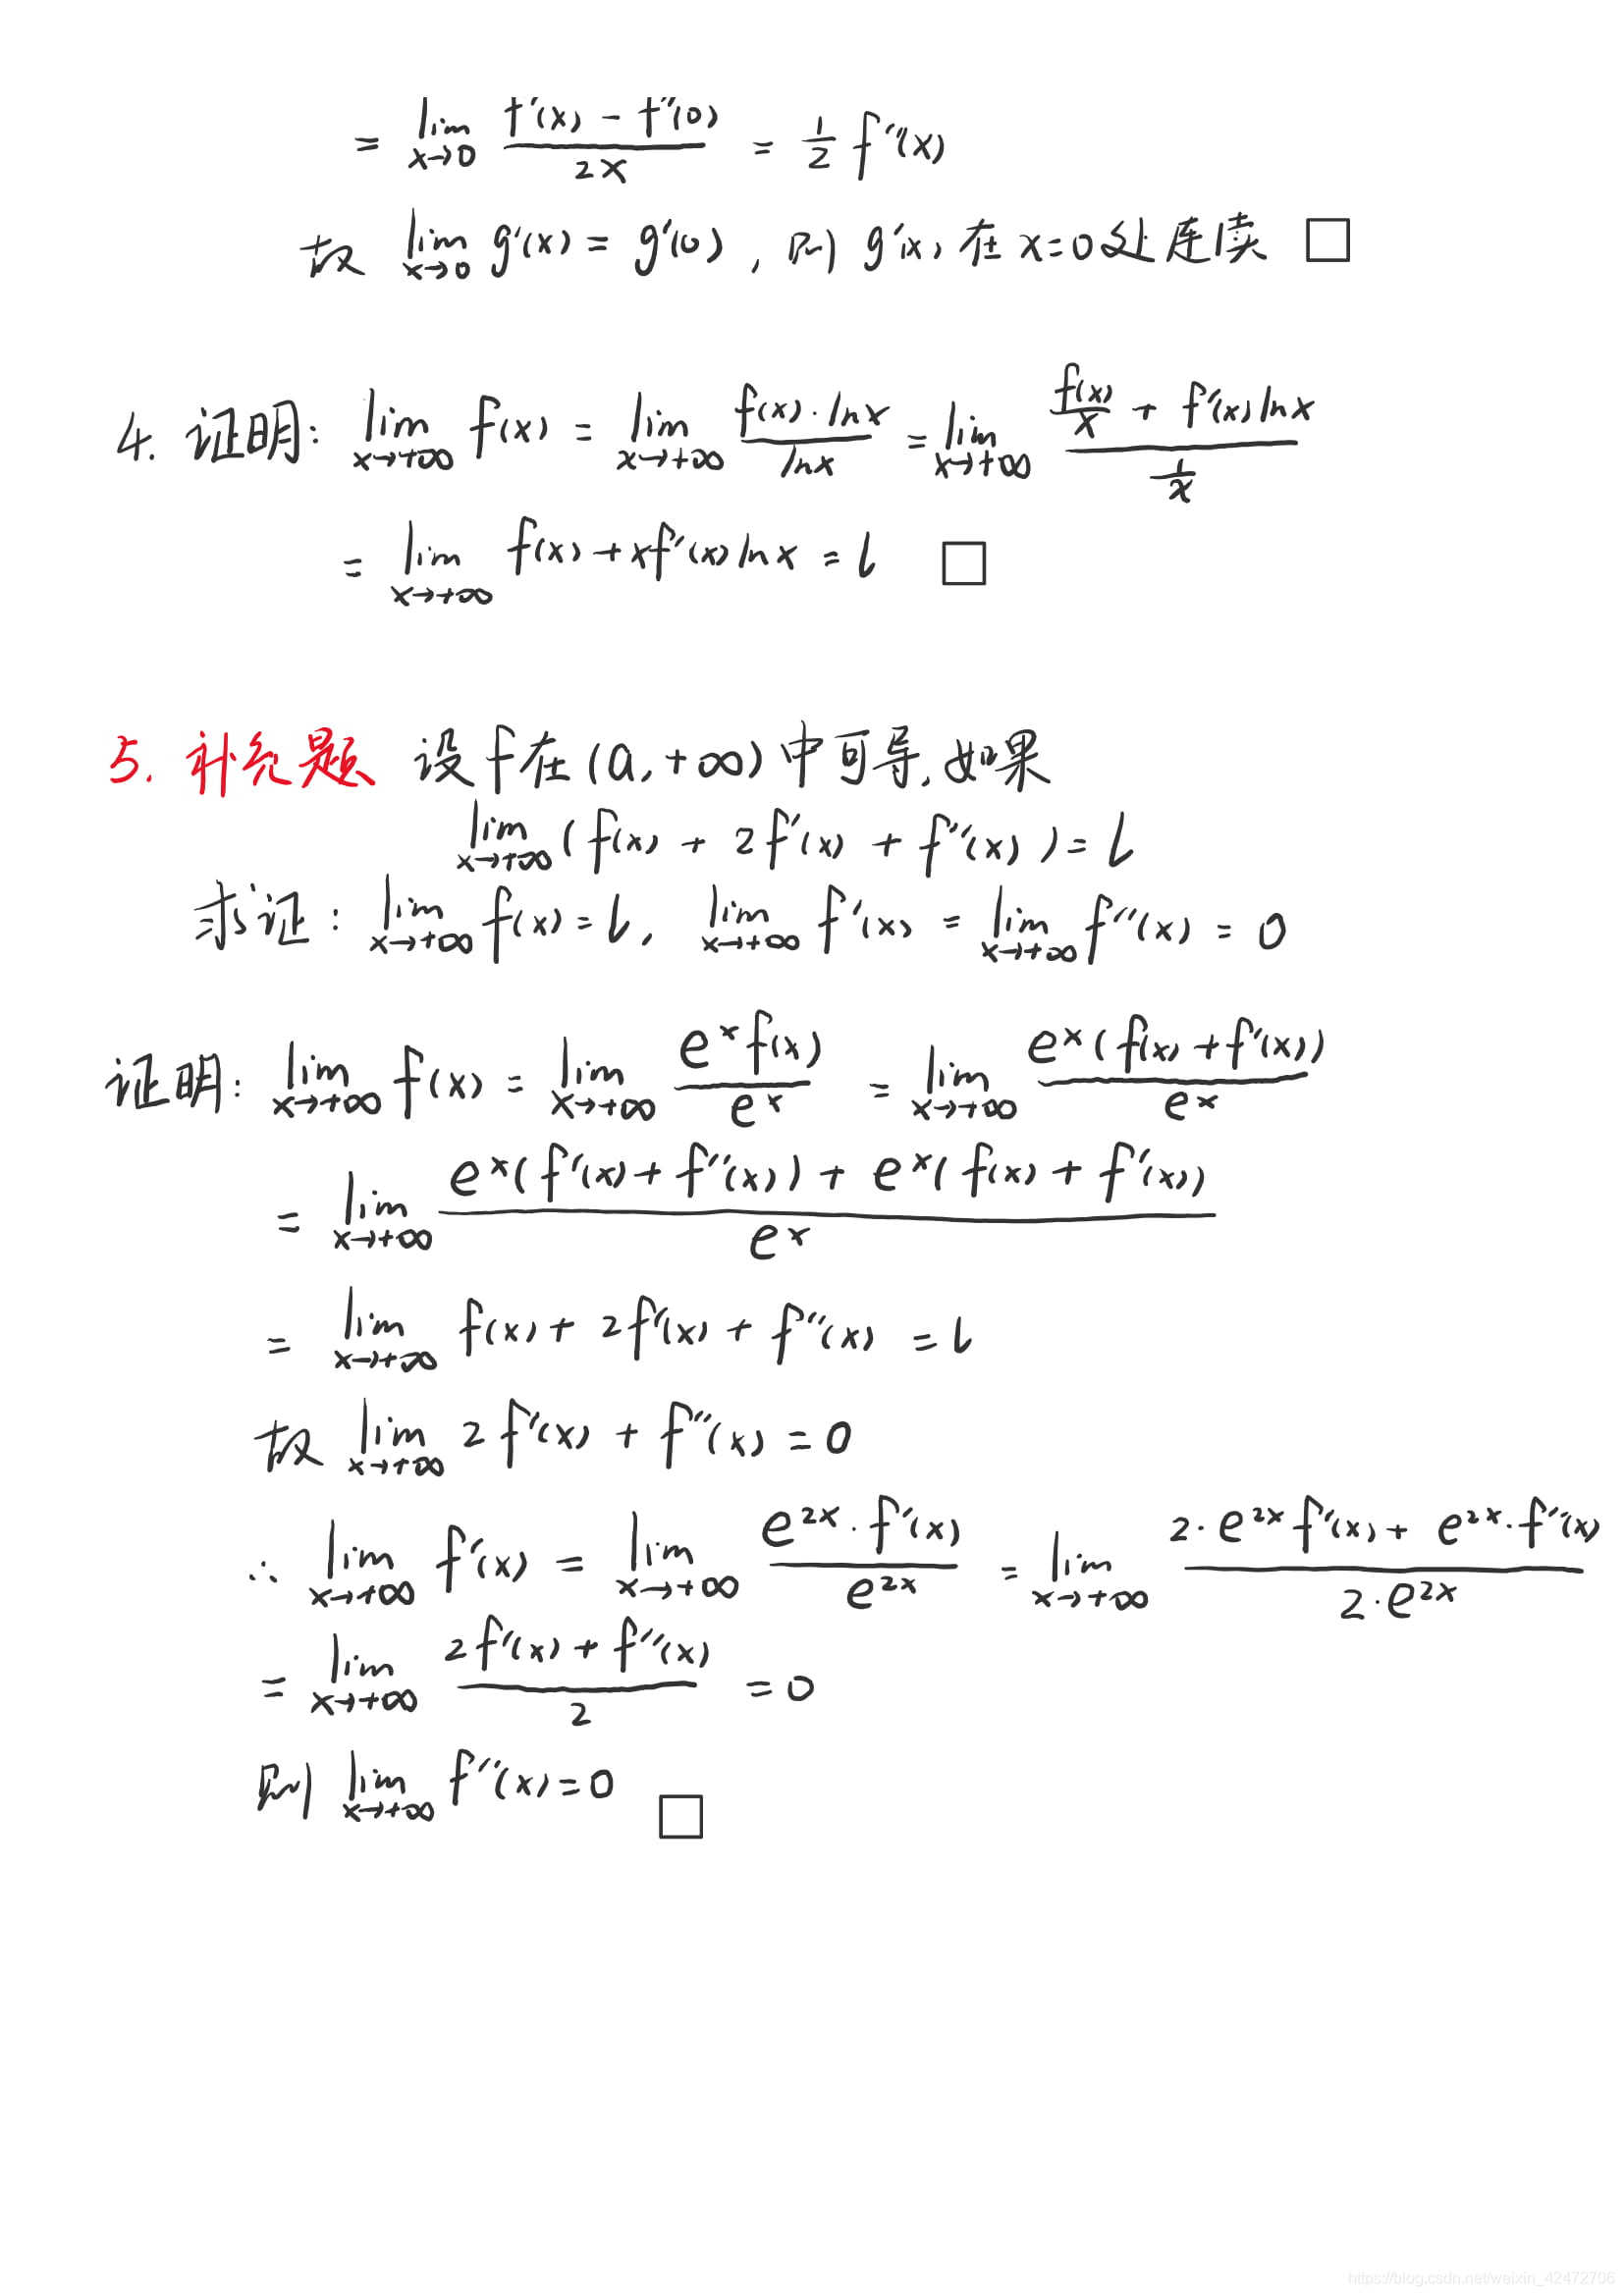 = lim_{x→0} (f'(x) - f'(0))/(2x) = 1/2 f''(x)
故 lim_{x→0} g'(x) = g'(0), 则 g'(x) 在 x=0处连续 □
4. 证明: lim_{x→+∞} f(x) = lim_{x→+∞} (f(x)·lnx)/(lnx) = lim_{x→+∞} (f(x)/x + f'(x)lnx)/(1/x)
= lim_{x→+∞} f(x) + xf'(x)lnx = l □
5. 补充题 设f在(a,+∞)中可导,如果
lim_{x→+∞} (f(x) + 2f'(x) + f''(x)) = l
求证: lim_{x→+∞} f(x) = l, lim_{x→+∞} f'(x) = lim_{x→+∞} f''(x) = 0
证明: lim_{x→+∞} f(x) = lim_{x→+∞} (e^x f(x))/(e^x) = lim_{x→+∞} (e^x(f(x)+f'(x)))/(e^x)
= lim_{x→+∞} (e^x(f'(x)+f''(x)) + e^x(f(x)+f'(x)))/(e^x)
= lim_{x→+∞} f(x) + 2f'(x) + f''(x) = l
故 lim_{x→+∞} 2f'(x) + f''(x) = 0
∴ lim_{x→+∞} f'(x) = lim_{x→+∞} (e^{2x}·f'(x))/(e^{2x}) = lim_{x→+∞} (2·e^{2x}f'(x) + e^{2x}·f''(x))/(2·e^{2x})
= lim_{x→+∞} (2f'(x) + f''(x))/2 = 0
则 lim_{x→+∞} f''(x) = 0 □
https://blog.csdn.net/weixin_42472706